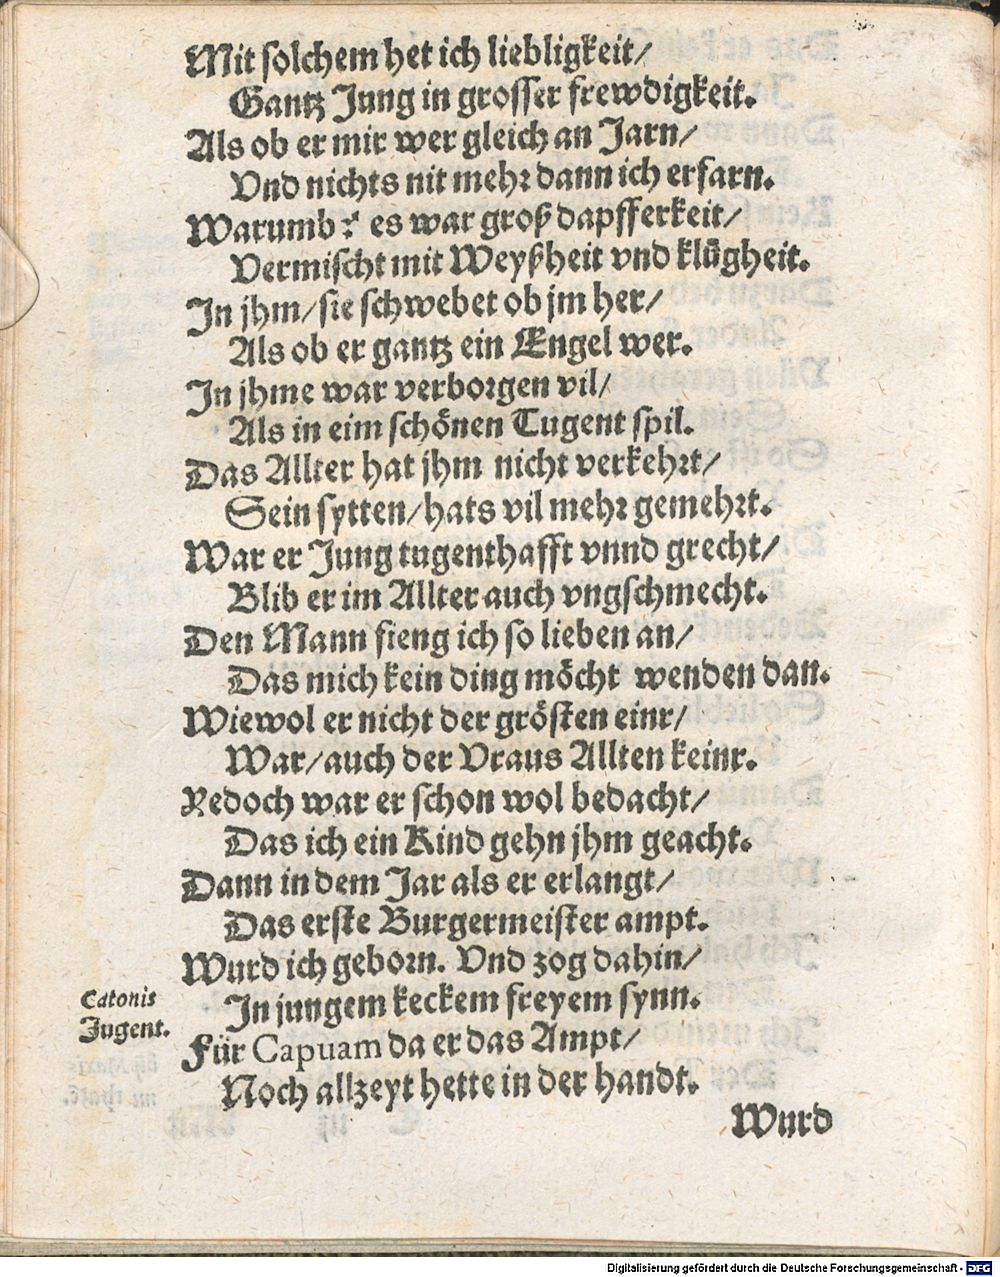 Mit solchem het ich liebligkeit/
Gantz Jung in grosser frewdigkeit.
Als ob er mir wer gleich an Jarn/
Vnd nichts nit mehr dann ich erfarn.
Warumb? es war groß dapfferkeit/
Vermischt mit Weyßheit vnd klůgheit.
In jhm/sie schwebet ob jm her/
Als ob er gantz ein Engel wer.
In jhme war verborgen vil/
Als in eim schönen Tugent spil.
Das Allter hat jhm nicht verkehrt/
Sein sytten/hats vil mehr gemehrt.
War er Jung tugenthafft vnnd grecht/
Blib er im Allter auch vngschmecht.
Den Mann fieng ich so lieben an/
Das mich kein ding möcht wenden dan.
Wiewol er nicht der grösten einr/
War/auch der Vraus Allten keinr.
Yedoch war er schon wol bedacht/
Das ich ein Kind gehn jhm geacht.
Dann in dem Jar als er erlangt/
Das erste Burgermeister ampt.
Wurd ich geborn. Vnd zog dahin/
In jungem keckem freyem synn.
Catonis
Jugent.
Für Capuam da er das Ampt/
Noch allzeyt hette in der handt.
Wurd
Digitalisierung gefördert durch die Deutsche Forschungsgemeinschaft - DFG